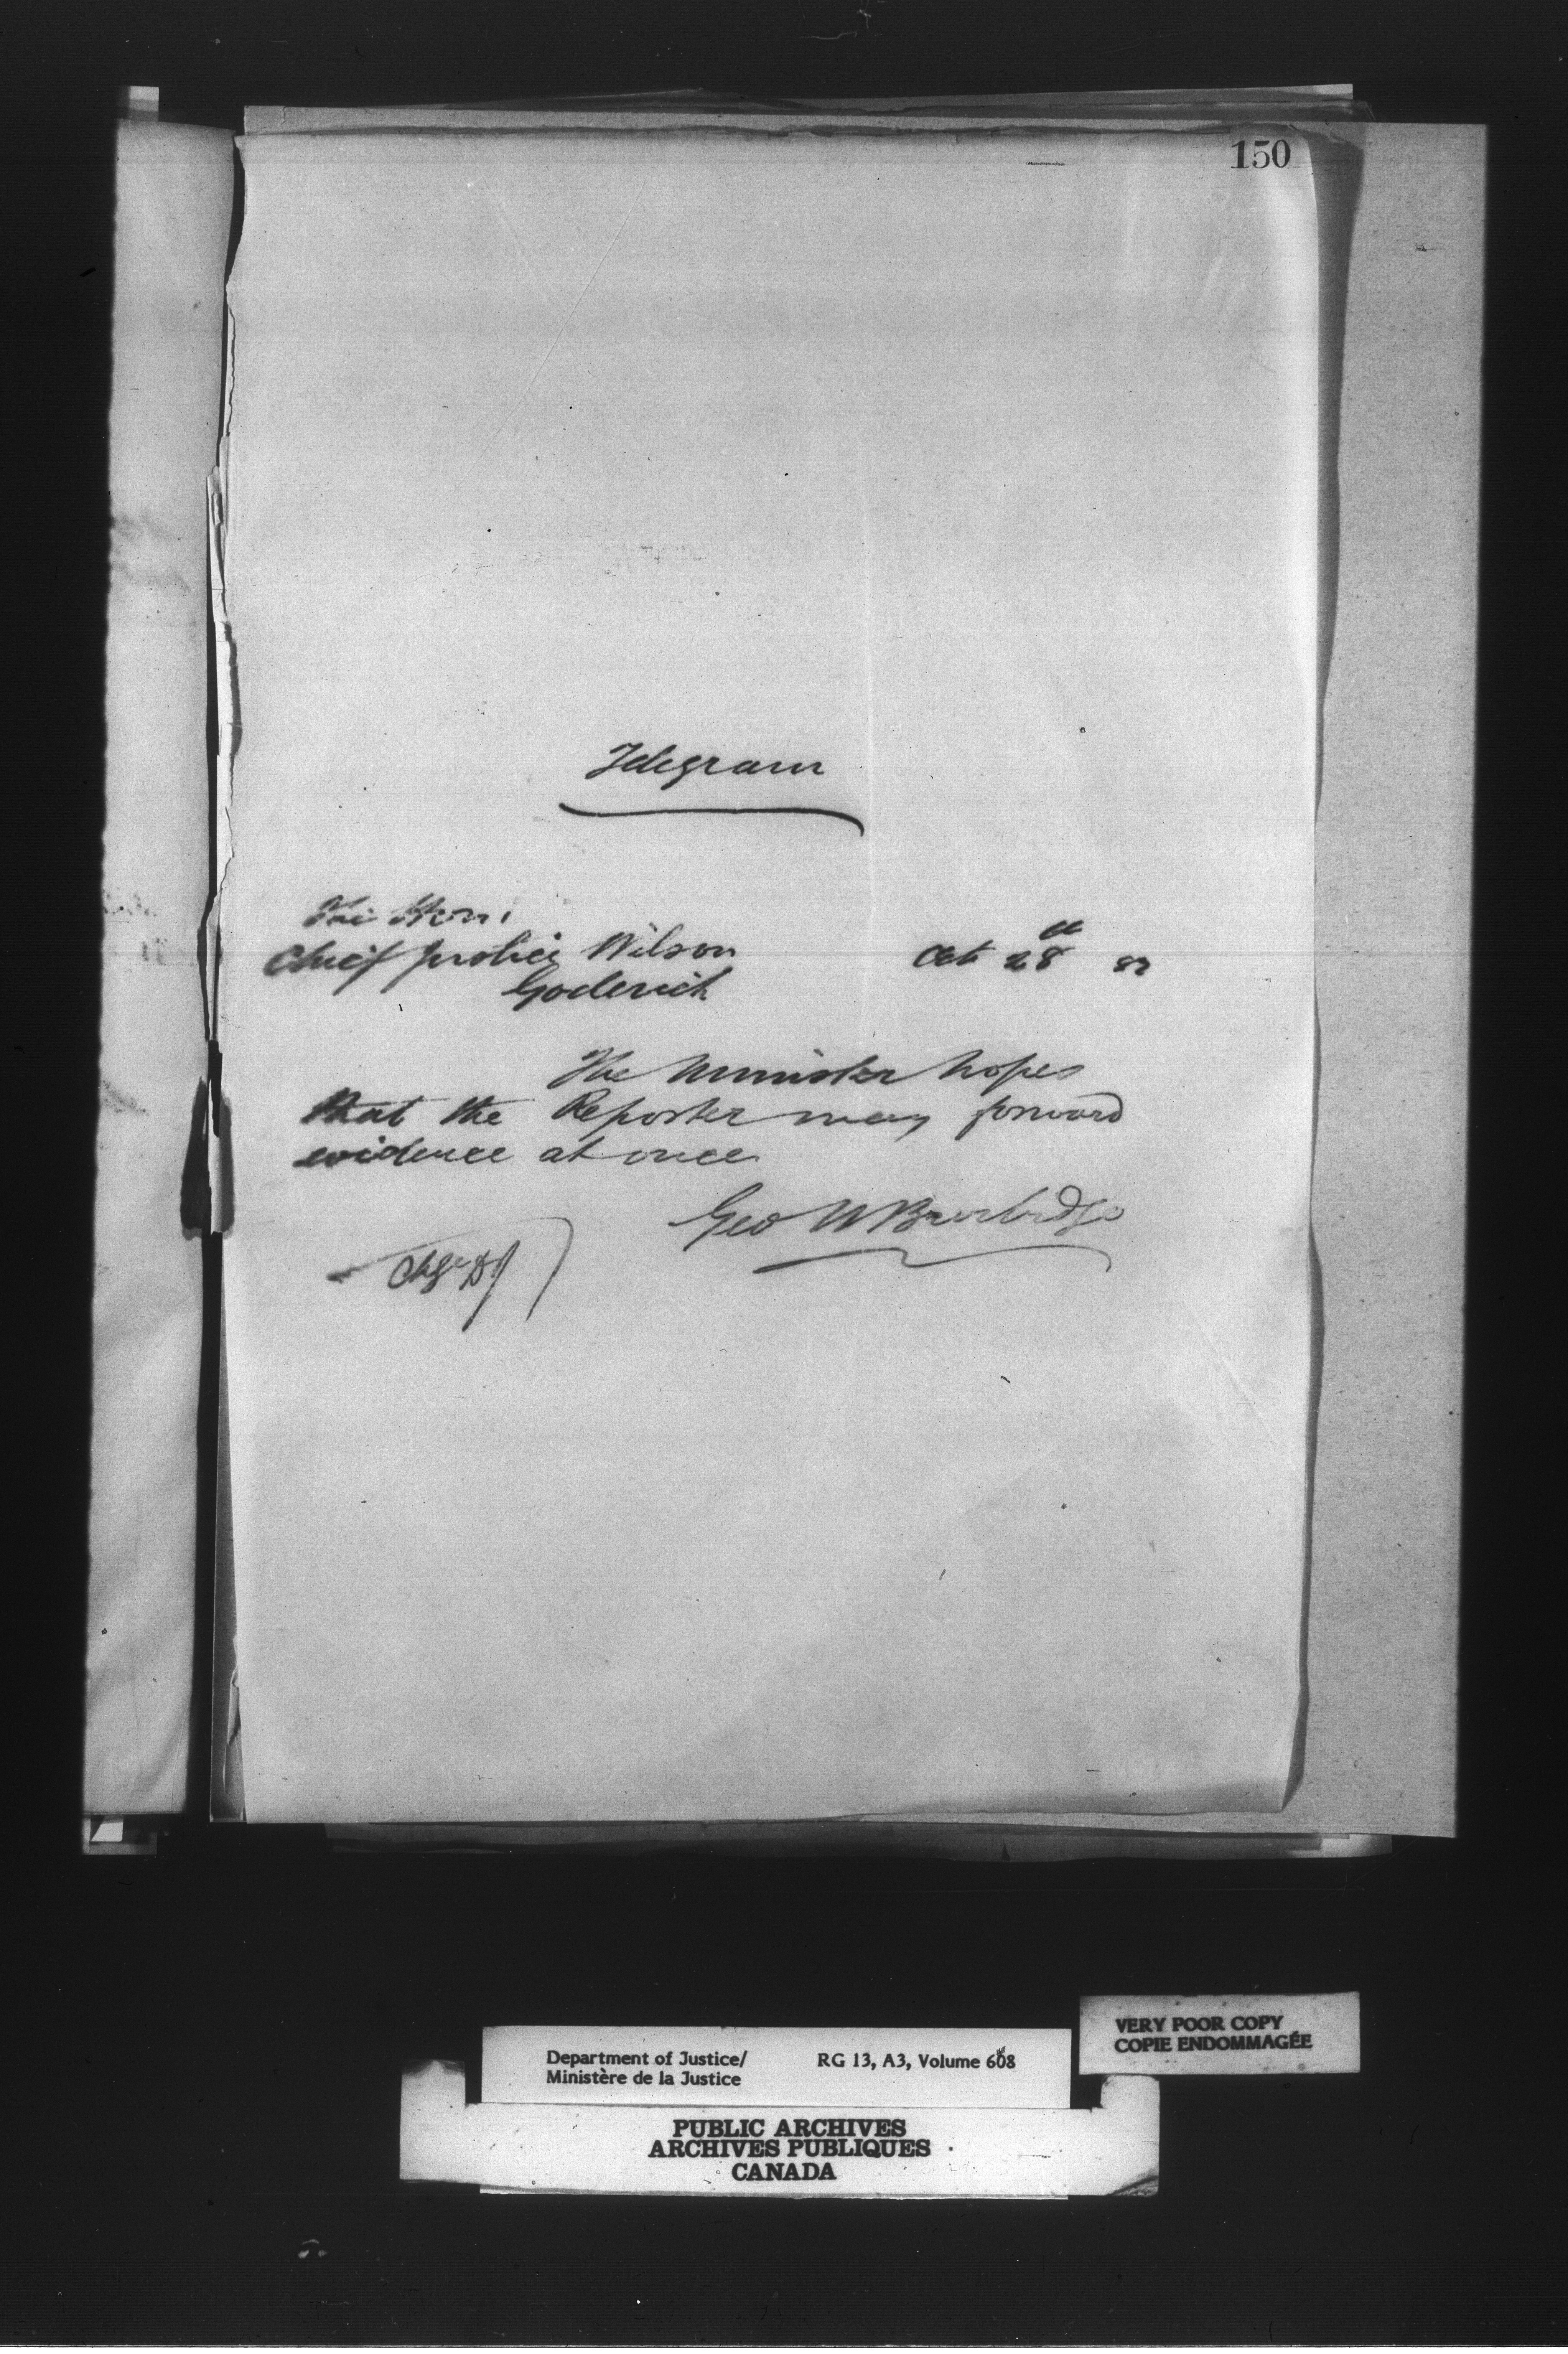 150
Telegram
The Hon.
Chief Justice Wilson
Oct 28th 82
Goderich
The Minister hopes
that the Reporter may forward
evidence at once
Geo W Burbidge
Chge D.J
VERY POOR COPY
COPIE ENDOMMAGÉE
Department of Justice/ RG 13, A3, Volume 608
Ministère de la Justice
PUBLIC ARCHIVES
ARCHIVES PUBLIQUES
CANADA